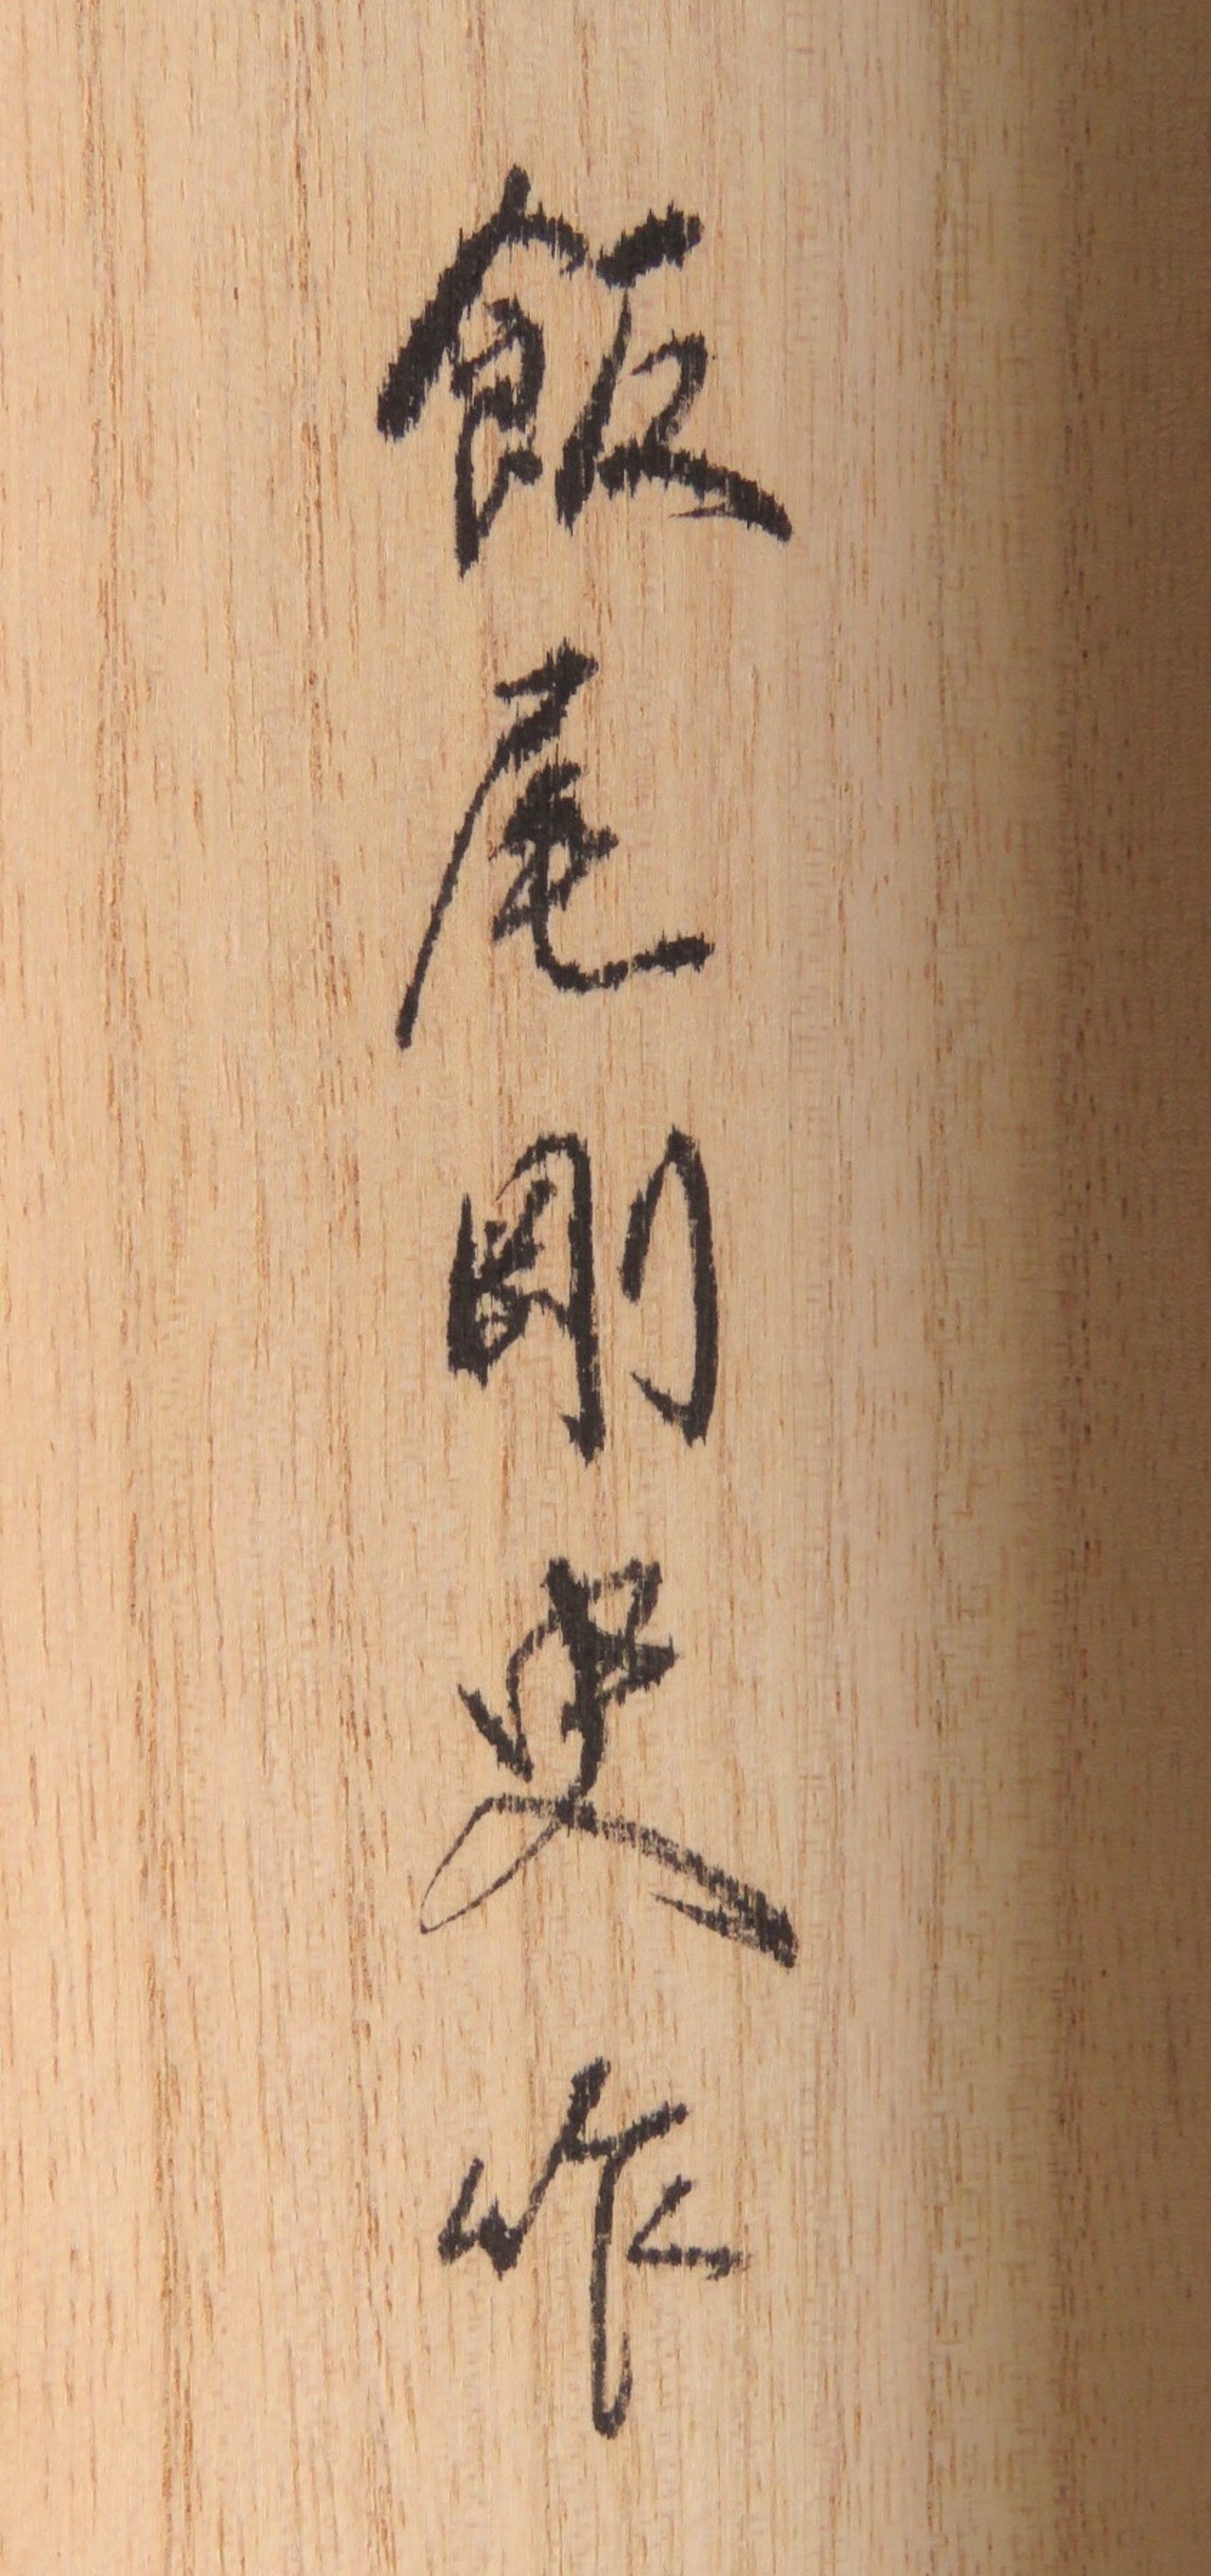 飯尾剛史作